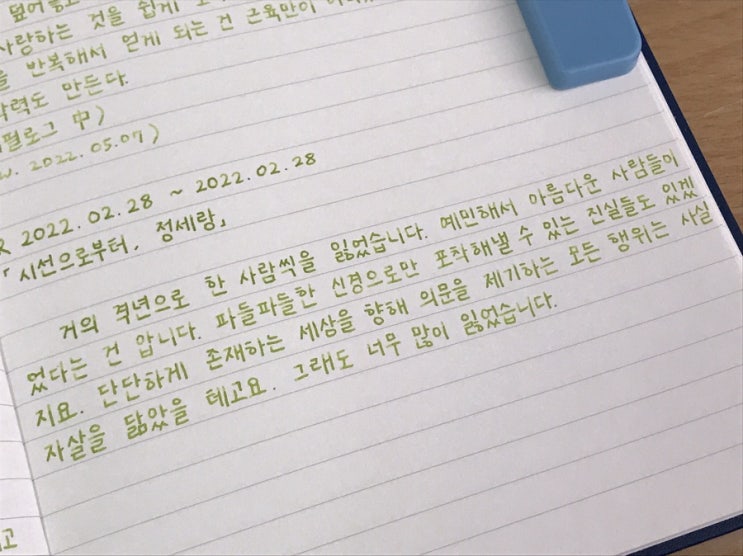 덮어놓고
사랑하는 것을 쉽게
을 반복해서 얻게 되는 건 근육만이
력도 만든다.
필로그 中)
2022.05.07)
R 2022.02.28 ~ 2022.02.28
「시선으로부터, 정세랑」
거의 격년으로 한 사람씩을 잃었습니다. 예민해서 아름다운 사람들이
었다는 건 압니다. 파들파들한 신경으로만 포착해낼 수 있는 진실들도 있겠
지요. 단단하게 존재하는 세상을 향해 의문을 제기하는 모든 행위는 사실
자살을 닮았을 테고요. 그래도 너무 많이 잃었습니다.
고